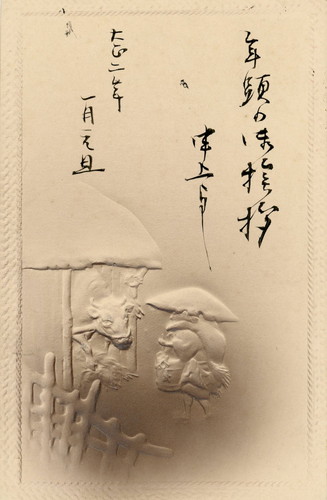 年頭の御挨拶
申上候
大正二年
一月元旦